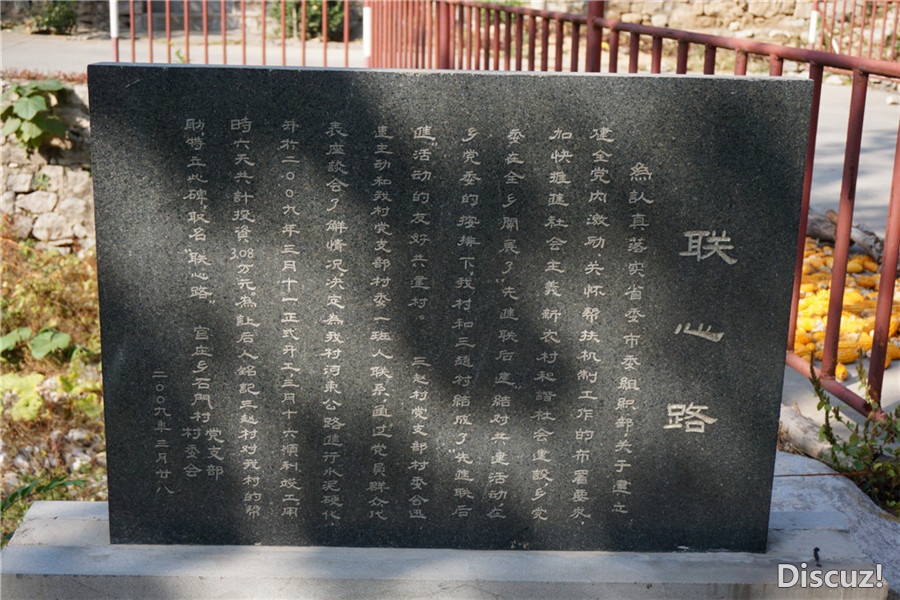 联心路
為认真落实省委市委组织部“关于建立
健全党内激励关怀帮扶机制工作的布署要求，
加快推進社会主義新农村和諧社会建設，乡党
委在全乡開展了“先進联后進”結对共建活动在
乡党委的按排下，我村和三赵村結成了“先進联后
進”活动的友好共建村。 三赵村党支部村委会迅
速主动和我村党支部村委一班人联系，通过党員群众代
表座談会了解情况决定為我村河東公路進行水泥硬化，
并於二00九年三月十一正式开工三月十六順利竣工用
時六天共計投資3.08万元為让后人銘記三赵村对我村的帮
助特立此碑，取名“联心路”
宫庄乡石門村党支部
村委会
二00九年三月廿八
Discuz!